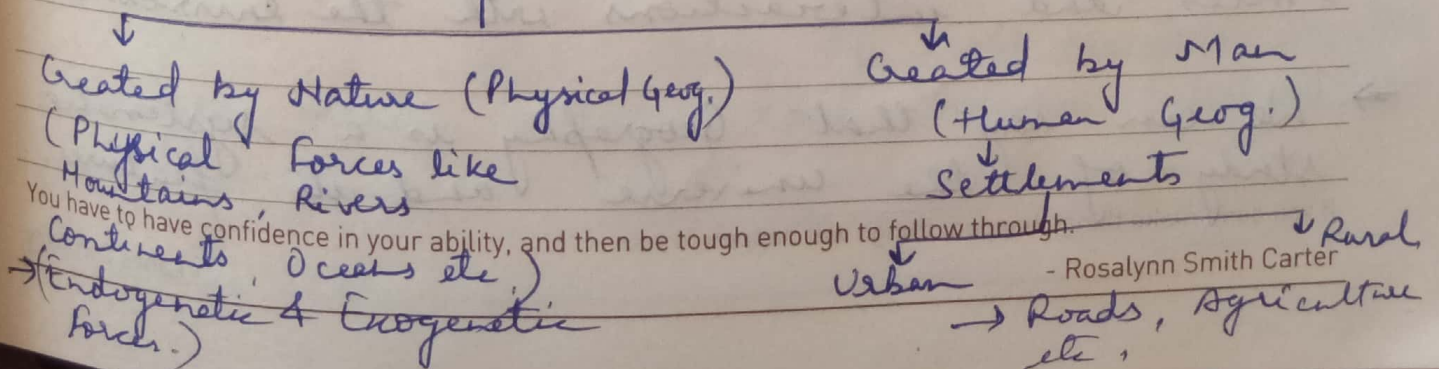 Created by Nature (Physical Geog.)
(Physical Forces like
Mountains, Rivers
Continents, Oceans etc.)
→ (Endogenetic & Exogenetic
Forces.)
Created by Man
(Human Geog.)
Settlements
Urban
Rural
→ Roads, Agriculture
etc,
You have to have confidence in your ability, and then be tough enough to follow through.
- Rosalynn Smith Carter